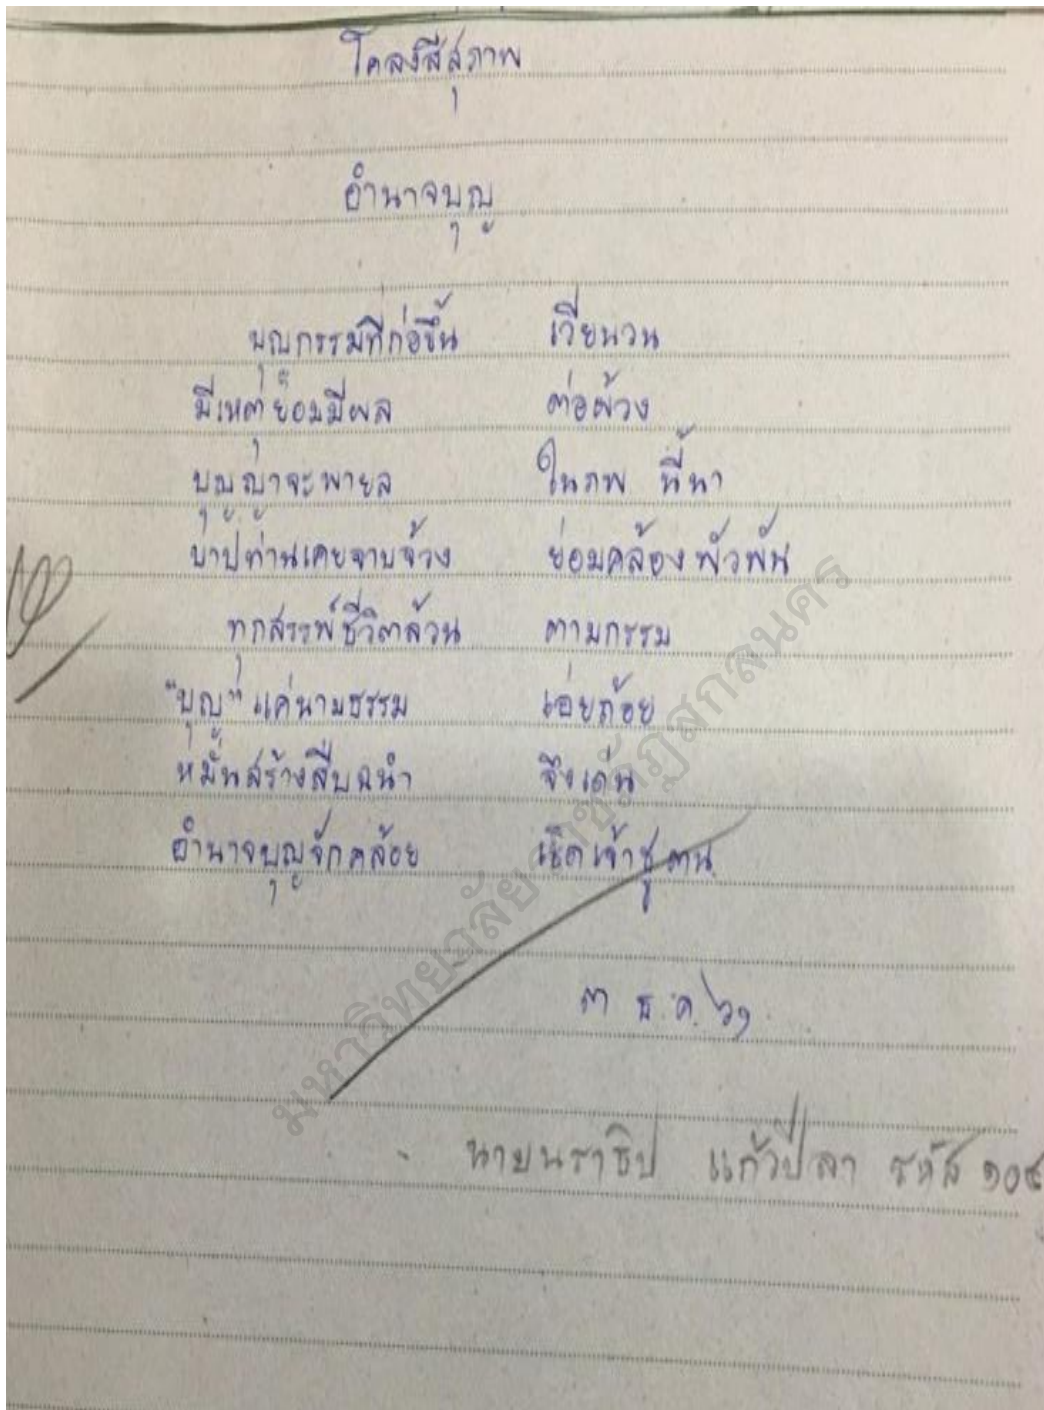 โคลงสี่สุภาพ
อำนาจบุญ
บุญกรรมที่ก่อขึ้น เวียนวน
มีเหตุย่อมมีผล ต่อพ้วง
บุญญาจะพายล ในภพ นี้นา
บาปท่านเคยจาบจ้วง ย่อมคล้องพัวพัน
ทุกสรรพ์ชีวิตล้วน ตามกรรม
"บุญ" แค่นามธรรม เอ่ยถ้อย
หมั่นสร้างสืบฉนำ จึงเด่น
อำนาจบุญจักคล้อย เชิดเจ้าชูตน
๓ ธ.ค. ๖๑
นายนราธิป แก้วปีลา รหัส ๑๐๔
มหาวิทยาลัยราชภัฏสกลนคร